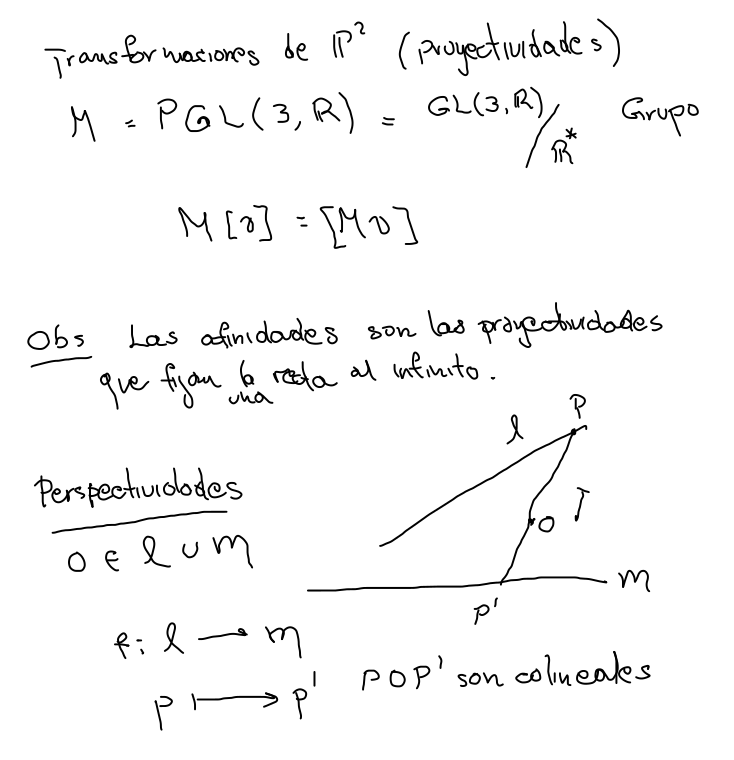 Transformaciones de ℙ² (proyectividades)
M = PGL(3,ℝ) = GL(3,ℝ)/ℝ* Grupo
M[v] = [Mv]
Obs Las afinidades son las proyectividades
que fijan la recta al infinito.
una
P
l
Perspectividades
O
O ∈ l ∪ m
m
P'
f: l → m
P ↦ P' P O P' son colineales